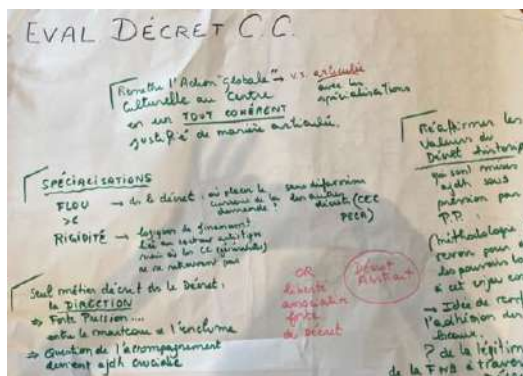 EVAL DÉCRET C.C.
Remettre l'Action "globale" → v.s. articulée
Culturelle au Centre avec les
en un TOUT COHÉRENT spécialisations
justifié de manière articulée.
SPÉCIALISATIONS
FLOU → ds le décret : où placer le sans
curseur de la les autres
demande ? décret (CEC
PECA)
><
RIGIDITÉ → logique de financement
lié au secteur artistique
mais où les CC (généralistes)
ne se retrouvent pas
Seul métier décrit ds le Décret :
la DIRECTION
⇒ Forte Pression ....
entre le marteau et l'enclume
⇒ Question de l'accompagnement
devient ajdh cruciale
OR
liberté
associative
forte
de décret
Décret
Abstrait
Réaffirmer les
valeurs du
Décret histori
qui sont mises
ajdh sous
pression par
P.P. :
(méthodologie
revoir pour
les pouvoirs lo
à cet enjeu co
→ Idée de ren
l'adhésion de
locaux.
? de la légitim
de la FWB à traver